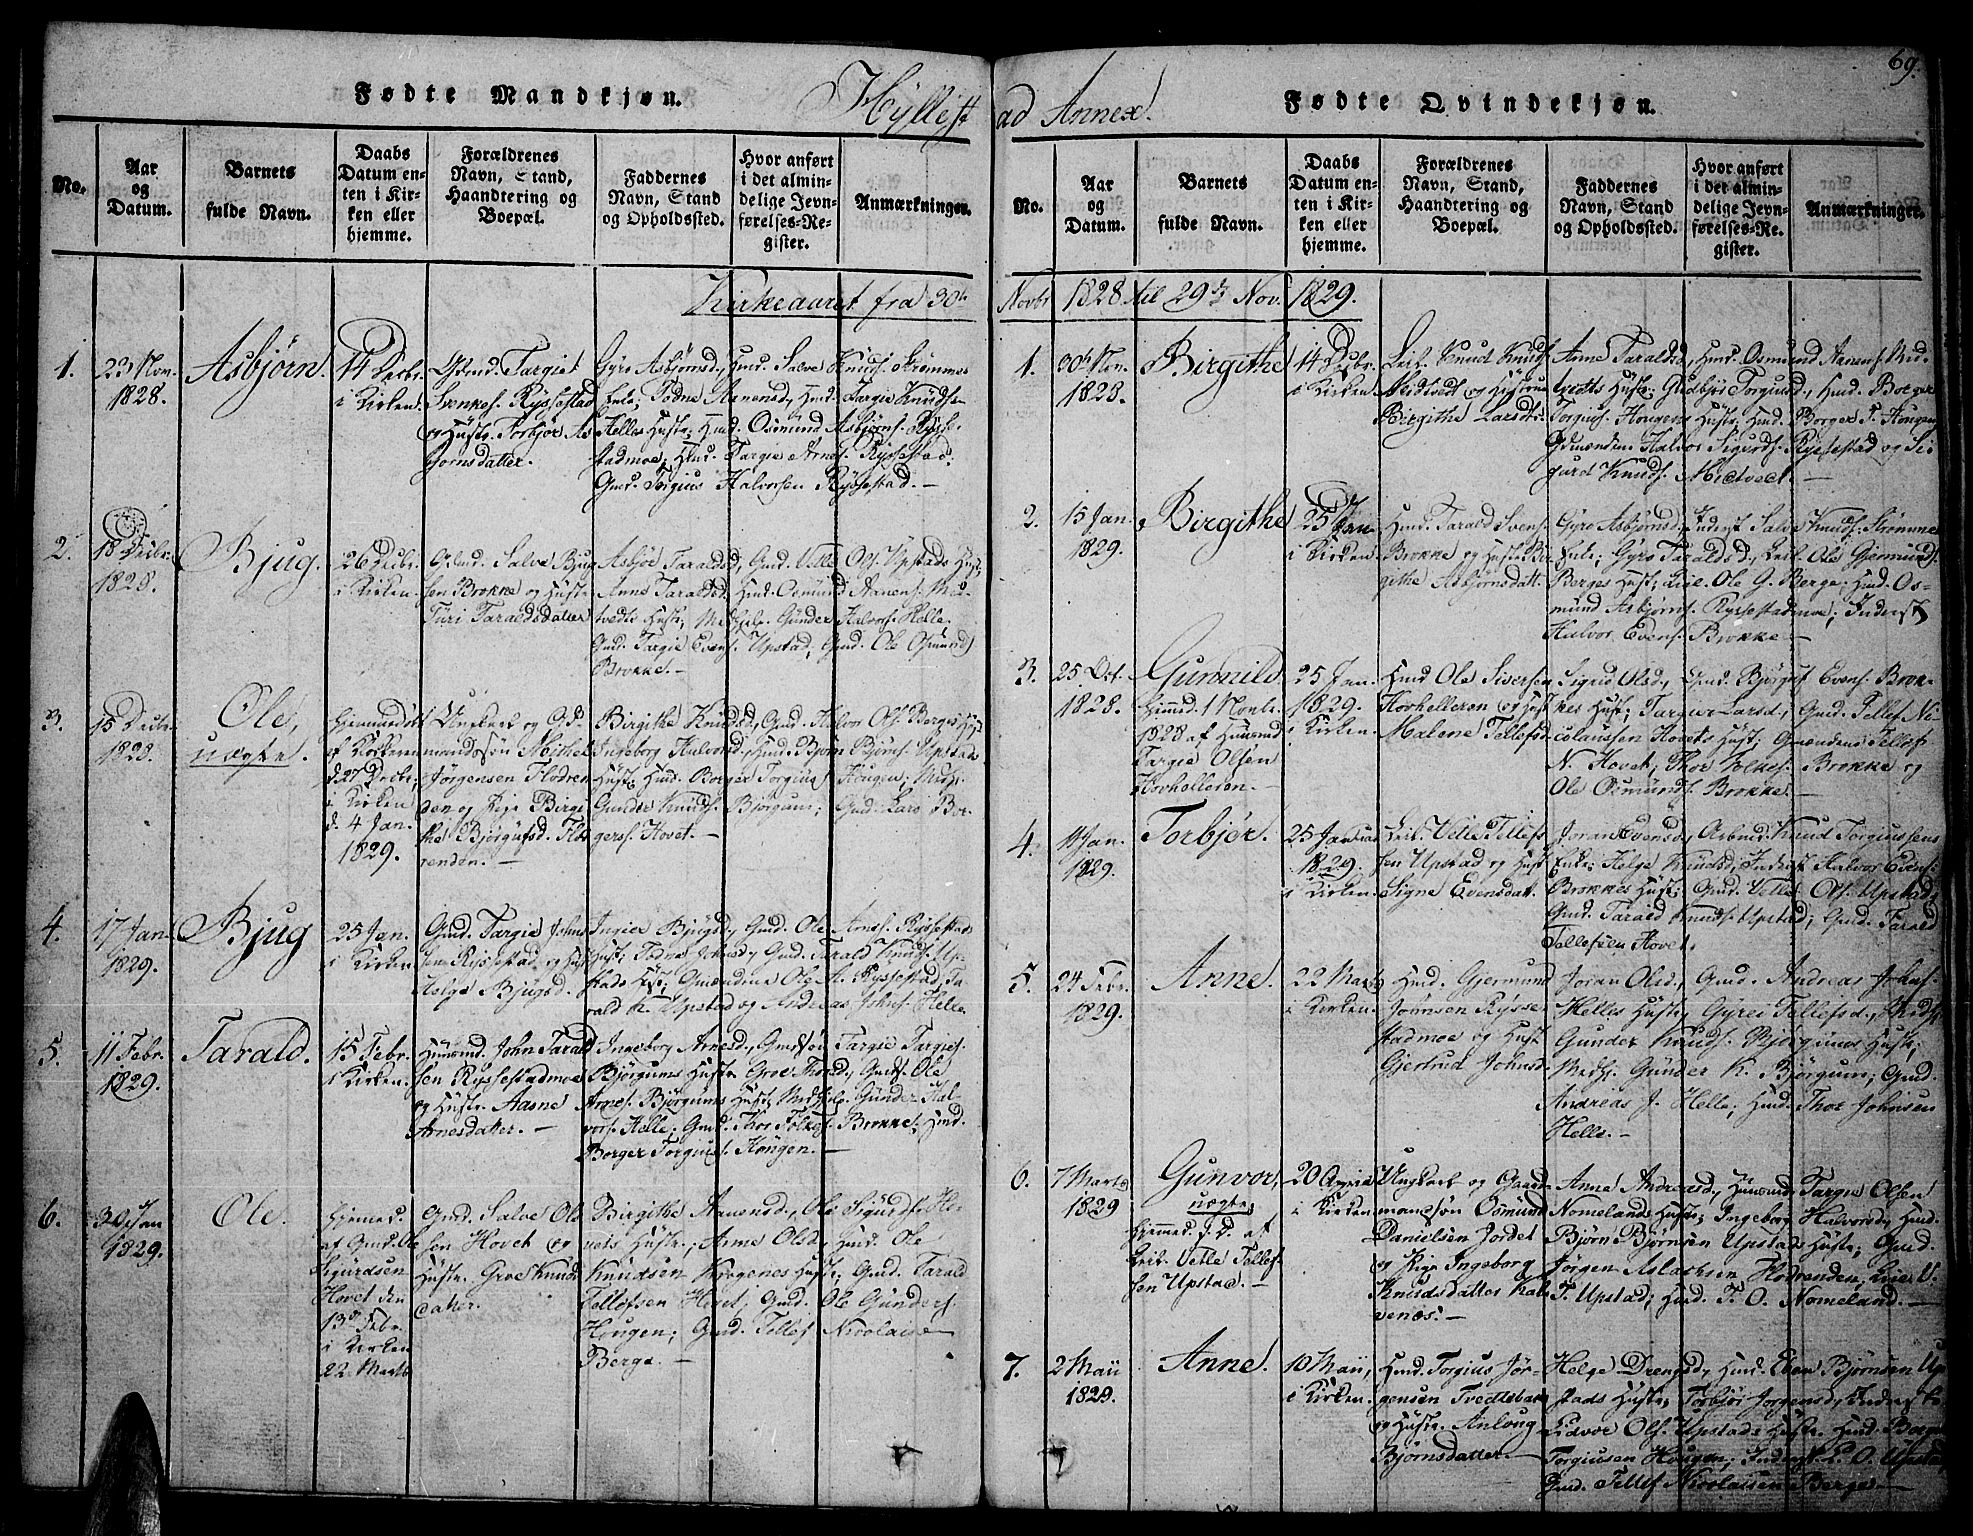 69.
Fødte Mandkjøn.
Hyllest
Aar
og
Datum.
No.
Barnets
fulde Navn.
Daabs
Datum en-
ten i Kir-
ken eller
hjemme.
Forældrenes
Navn, Stand,
Haandtering og
Boepæl.
Faddernes
Navn, Stand
og Opholdssted.
Hvor anført
i det almin-
delige Jevn-
førelses-Re-
gister.
Anmærkninger.
Kirkeaaret fra 30te
1.
23 Nov.
1828.
Asbjørn
14 Decbr.
i Kirken
Gmd. Targie
Svenkes. Ryssestad
og Hustr. Torbjør As
bjornsdatter.
Gyro Asbjørnsd., Hmd. Salve Knuds. Strømmes
Enke; Todne Aanensd., Hmd. Targie Knuds.
Helles Hustr; Hmd. Osmund Asbjørns. Rysse-
stadmoe; Hmd. Targie Arnes. Ryssestad.
Gmd. Torgius Halvorsen Ryssestad. —
2.
18 Decbr.
1828.
Bjug.
26 Decbr.
i Kirken.
Gmd. Salve Bjug
sen Brokke og Hustr.
Turi Taraldsdatter
Asbjør Taraldsd., Gmd. Vetle Ols. Upstads Hust;
Anne Taraldsd. Hmd. Osmund Aanens. Mid-
tvedts Hust; Gunder Halvors. Helle.
Gmd. Targie Evens. Upstad; Gmd. Ole Osmunds
Brokke. —
3.
15 Decbr.
1828.
Ole,
uægte.
Hjemmedøbt
af
d. 27 Decbr.
i Kirken
d. 4 Jan.
1829.
Ungkarl og G.
mandssøn Michel
Jørgensen Flodren
den og Pige Birgi
the Bjørgulfsd. Flod
renden. —
Birgithe Knudsd., Gmd. Halvor Ols. Berges Hust;
Ingeborg Halvorsd., Hmd. Bjørn Bjørns. Upstads
Hust; Hmd. Borger Torgius. Hougen; Medhj.
Gunder Knuds. Bjørgum; Gmd. Lars Bor-
gers. Hovet. —
4.
17 Jan.
1829.
Bjug
25 Jan.
i Kirken
Gmd. Targie Johns
sen Ryssestad og Hust
Helge Bjugsd.
Ingier Bjugsd., Gmd. Ole Arnes. Ryssestads
Hust; Todne Johnsd., Gmd. Tarald Knuds. Up-
stads Hust; Gmændene Ole A. Ryssestad, Ta-
rald K. Upstad og Andreas Johns. Helle.
5.
11 Febr.
1829.
Tarald.
15 Febr.
i Kirken.
Huusmd. John Tarald
sen Ryssestadmoe
og Hustr. Aasne
Arnesdatter. —
Ingeborg Arnesd., Gmdssøn Targie Targies.
Bjørgums Hustr. Groe Thorsd., Gmd. Ole
Arnes. Bjørgums Hust; Medhjelp. Gunder Hal-
vors. Helle; Gmd. Thor Folkes. Brokke; Hmd.
Borger Torgius. Hougen. —
6.
30 Jan
1829.
Ole.
Hjemmed.
af Gmd. Ole
Sigurdsen
Hovet den
13de Febr.
i Kirken
22 Marts
Gmd. Salve Ols
sen Hovet og
Hustr. Groe Knuds
datter.
Birgithe Aanensd., Ole Sigurds. Ho-
vets Hustr.; Anne Olsd. Hmd. Ole
Knudsen Hougenes Hustr; Gmd. Tarald
Tellefsen Hovet, Gmd. Ole Gunders.
Hougen; Gmd. Tellef Nicolaisen
Berge. —
ad Annex.
Fødte Qvindekjøn.
No.
Aar
og
Datum.
Barnets
fulde Navn.
Daabs
Datum en-
ten i Kir-
ken eller
hjemme.
Forældrenes
Navn, Stand,
Haandtering og
Boepæl.
Faddernes
Navn, Stand
og Opholdssted.
Hvor anført
i det almin-
delige Jevn-
førelses-Re-
gister.
Anmærkninger.
Novbr 1828 til 29de Nov. 1829.
1.
30te Nov.
1828.
Birgithe
14 Decbr.
i Kirken
Leil. Knud Knuds.
Midtvedt og Hustrue
Birgithe Larsdtr.
Anne Taraldsd., Hmd. Osmund Aanens. Mid-
tvedts Hustr; Gudbjør Torgiusd., Hmd. Borger
Torgius. Hougens Hustr; Hmd. Borger T. Hougen
Gdmænden Halvor Sigurds. Ryssestad og Si-
gurd Knuds. Midtvedt. —
2.
15 Jan.
1829.
Birgithe
25 Jan.
i Kirken.
Hmd. Tarald Svens.
Brokke og Hustr. Bir
githe Asbjørnsdatt.
Gyro Asbjørnsd., Inderst Salve Knuds. Strømmes
Enke; Gyro Taraldsd., Leil. Ole Gjermunds.
Berges Hust; Leil. Ole G. Berge; Hmd. Os-
mund Asbjørns. Ryssestadmoe; Inderst
Halvor Evens. Brokke —
3.
25 Oct.
1828.
Gunnild
Hiemd. 1 Novbr.
1828 af Huusmd
Targie Olsen
Hovhelleren. —
25 Jan.
1829.
i Kirken.
Hmd Ole Siversen
Hovhelleren og Hust
Malene Tellefsd.
Sigrid Olsd., Gmd. Bjørguf Evens. Brok-
kes Hust; Targier Larsd, Gmd. Tellef Ni-
colaissen Hovets Hust; Gmændene Tellef
N. Hovet; Thor Folkes. Brokke og
Ole Osmunds. Brokke. —
4.
11 Jan.
1829.
Torbjør.
25 Januar
1829.
i Kirken.
Leil. Vetle Tellefs
sen Upstad og Hust
Signe Evensdat.
Joran Evensd, Arbmd. Knud Torgiussens
Enke; Helge Knudsd, Inderst Halvor Evens.
Brokkes Hust; Gmd. Vetle Ols. Upstad;
Gmd. Tarald Knuds. Upstad; Gmd. Tarald
Tellefsen Hovet.
5.
24 Febr.
1829.
Anne.
22 Marts
i Kirken.
Hmd. Gjermund
Jonsen Rysse-
stadmoe og Hust
Gjertrud Johnsd.
Joran Olsd., Gmd. Andreas Johns.
Helles Hustr; Gyrei Tellefsd., Medhj
Gunder Knuds. Bjørgums Hust;
Medhj. Gunder K. Bjørgum; Gmd.
Andreas J. Helle; Hmd. Thor Johnsen
Helle. —
6.
7 Marts
1829
Gunvor,
uægte,
Hjemmed. s. D. af
Leil. Vetle Tellef-
sen Upstad. —
20 April
i Kirken
Ungkarl og Gaard-
mandssøn Osmund
Danielsen Jordet
og Pige Ingeborg
Knudsdatter Kal-
venæs. —
Anne Andreasd., Huusmd Targie Olsen
Nomelands Hustr; Ingeborg Halvorsd, Hmd.
Bjørn Bjørnsen Upstads Hustr; Gmd.
Jørgen Aslachsen Flodrenden; Leil. V.
T. Upstad; Hmd. T. O. Nomeland. —
7.
2 Maii
1829.
Anne.
10 Maii,
i Kirken.
Hmd. Torgius Jør-
gensen Tvedtebak
og Hustr. Anlaug
Bjørnsdatter. —
Helge Drengsd., Hmd. Even Bjørnsen Up-
stads Hustr; Torbjør Jørgensd, Inderst
Eidvoe Ols. Upstads Hustr. Hmd. Borger
Torgiussen Hougen; Inderst E. O. Upstad,
Gmd. Tellef Nicolaissen Berge. —